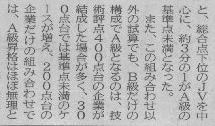 と、総合点下位のJVを中
心に、約3分の1がA級の
基準点未満となった。
また、この組み合わせ以
外の試算でも、B級だけの
構成でA級となるのは、技
術評点400点台の企業が
結成した場合が多く、30
0点台では基準点未満のケ
ースが増え、200点台の
企業だけの組み合わせで
は、A級昇格はほぼ無理と